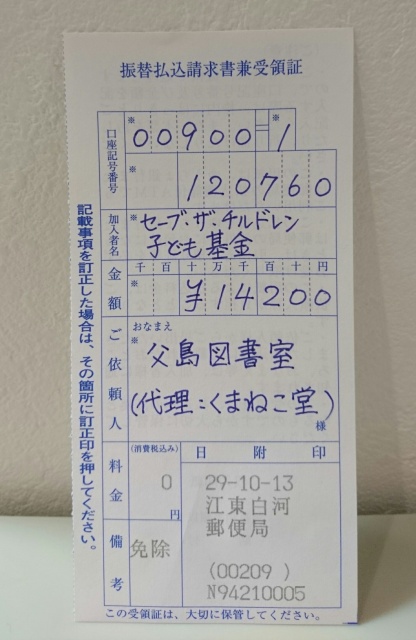 振替払込請求書兼受領証
口座記号番号
※
00900
※
1
120760
加入者名
※
セーブ・ザ・チルドレン
子ども基金
金額
千百十万千百十円
※
¥14200
ご依頼人
おなまえ
※
父島図書室
(代理:くまねこ堂)
様
料金
(消費税込み)
0
円
備考
免除
日附印
29-10-13
江東白河
郵便局
(00209 )
N94210005
記載事項を訂正した場合は、その箇所に訂正印を押してください。
この受領証は、大切に保管してください。